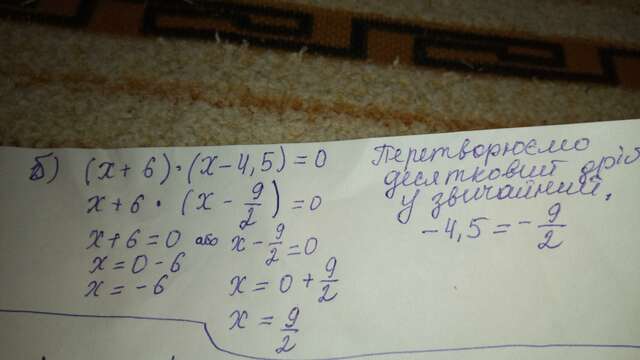 б) (x + 6) · (x − 4,5) = 0
x + 6 · (x − 9/2) = 0
x + 6 = 0 або x − 9/2 = 0
x = 0 − 6
x = −6
x = 0 + 9/2
x = 9/2
Перетворюємо
десятковий дріб
у звичайний,
−4,5 = −9/2